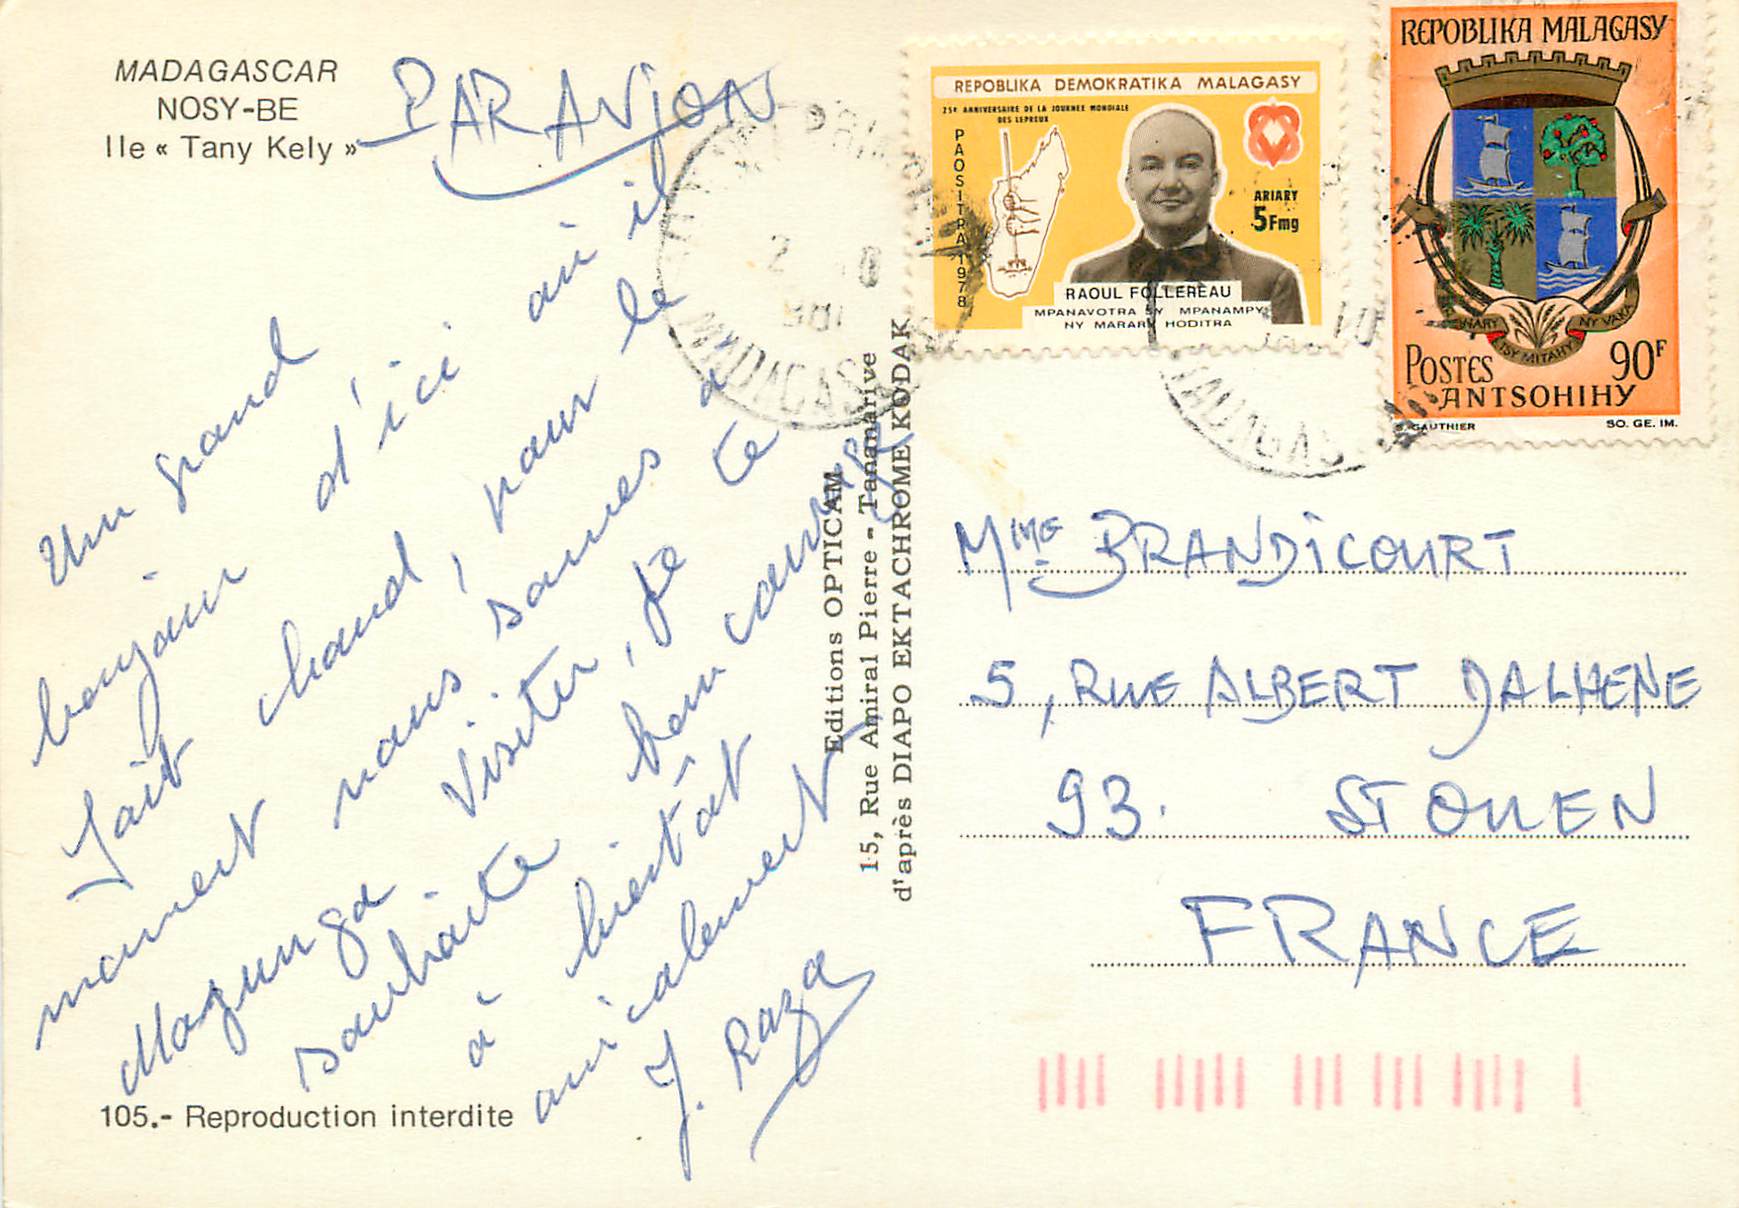 MADAGASCAR
NOSY-BE
Ile « Tany Kely »
PAR AVION
Un grand
bonjour d'ici où il
fait chaud, pour le
moment nous sommes à
Majunga visiter, je te
souhaite bon courage
à bientôt
amicalement
J. Raza
105.- Reproduction interdite
Editions OPTICAM
15, Rue Amiral Pierre - Tananarive
d'après DIAPO EKTACHROME KODAK
REPOBLIKA DEMOKRATIKA MALAGASY
25e ANNIVERSAIRE DE LA JOURNEE MONDIALE
DES LEPREUX
PAOSITRA 1978
ARIARY
5Fmg
RAOUL FOLLEREAU
MPANAVOTRA SY MPANAMPY
NY MARARY HODITRA
REPOBLIKA MALAGASY
NY VAKA
TSY MITAHY
POSTES 90F
ANTSOHIHY
S. GAUTHIER SO. GE. IM.
MADAGAS
Mme BRANDICOURT
5, RUE ALBERT DALHENE
93. ST OUEN
FRANCE